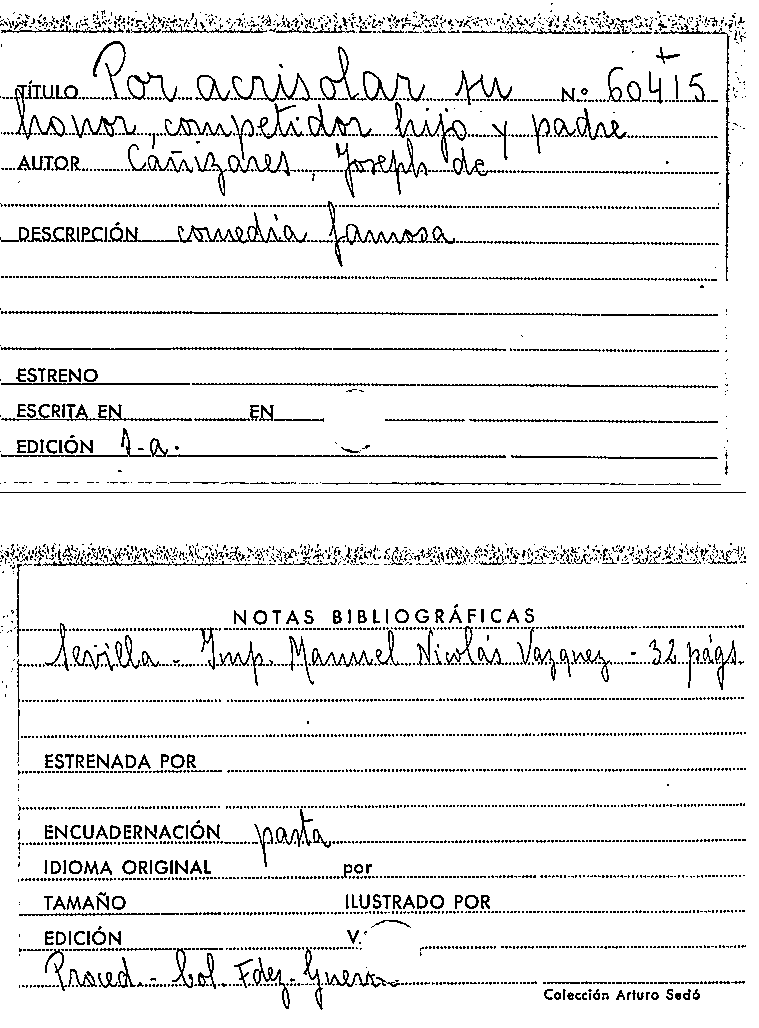 TÍTULO Por acrisolar su Nº 60415
honor, competidor hijo y padre
AUTOR Cañizares, Joseph de
DESCRIPCIÓN comedia famosa
ESTRENO
ESCRITA EN EN
EDICIÓN s.a.
NOTAS BIBLIOGRÁFICAS
Sevilla - Imp. Manuel Nicolás Vazquez - 32 págs.
ESTRENADA POR
ENCUADERNACIÓN pasta
IDIOMA ORIGINAL por
TAMAÑO ILUSTRADO POR
EDICIÓN V.
Proced. - Col. Fdez-Guerra
Colección Arturo Sedó